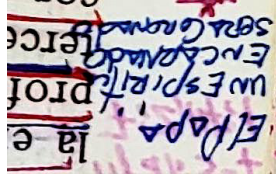 El Papa,
UN ESPIRIT
ENCARNADO
SERA CORONADO
la e
prof
terce